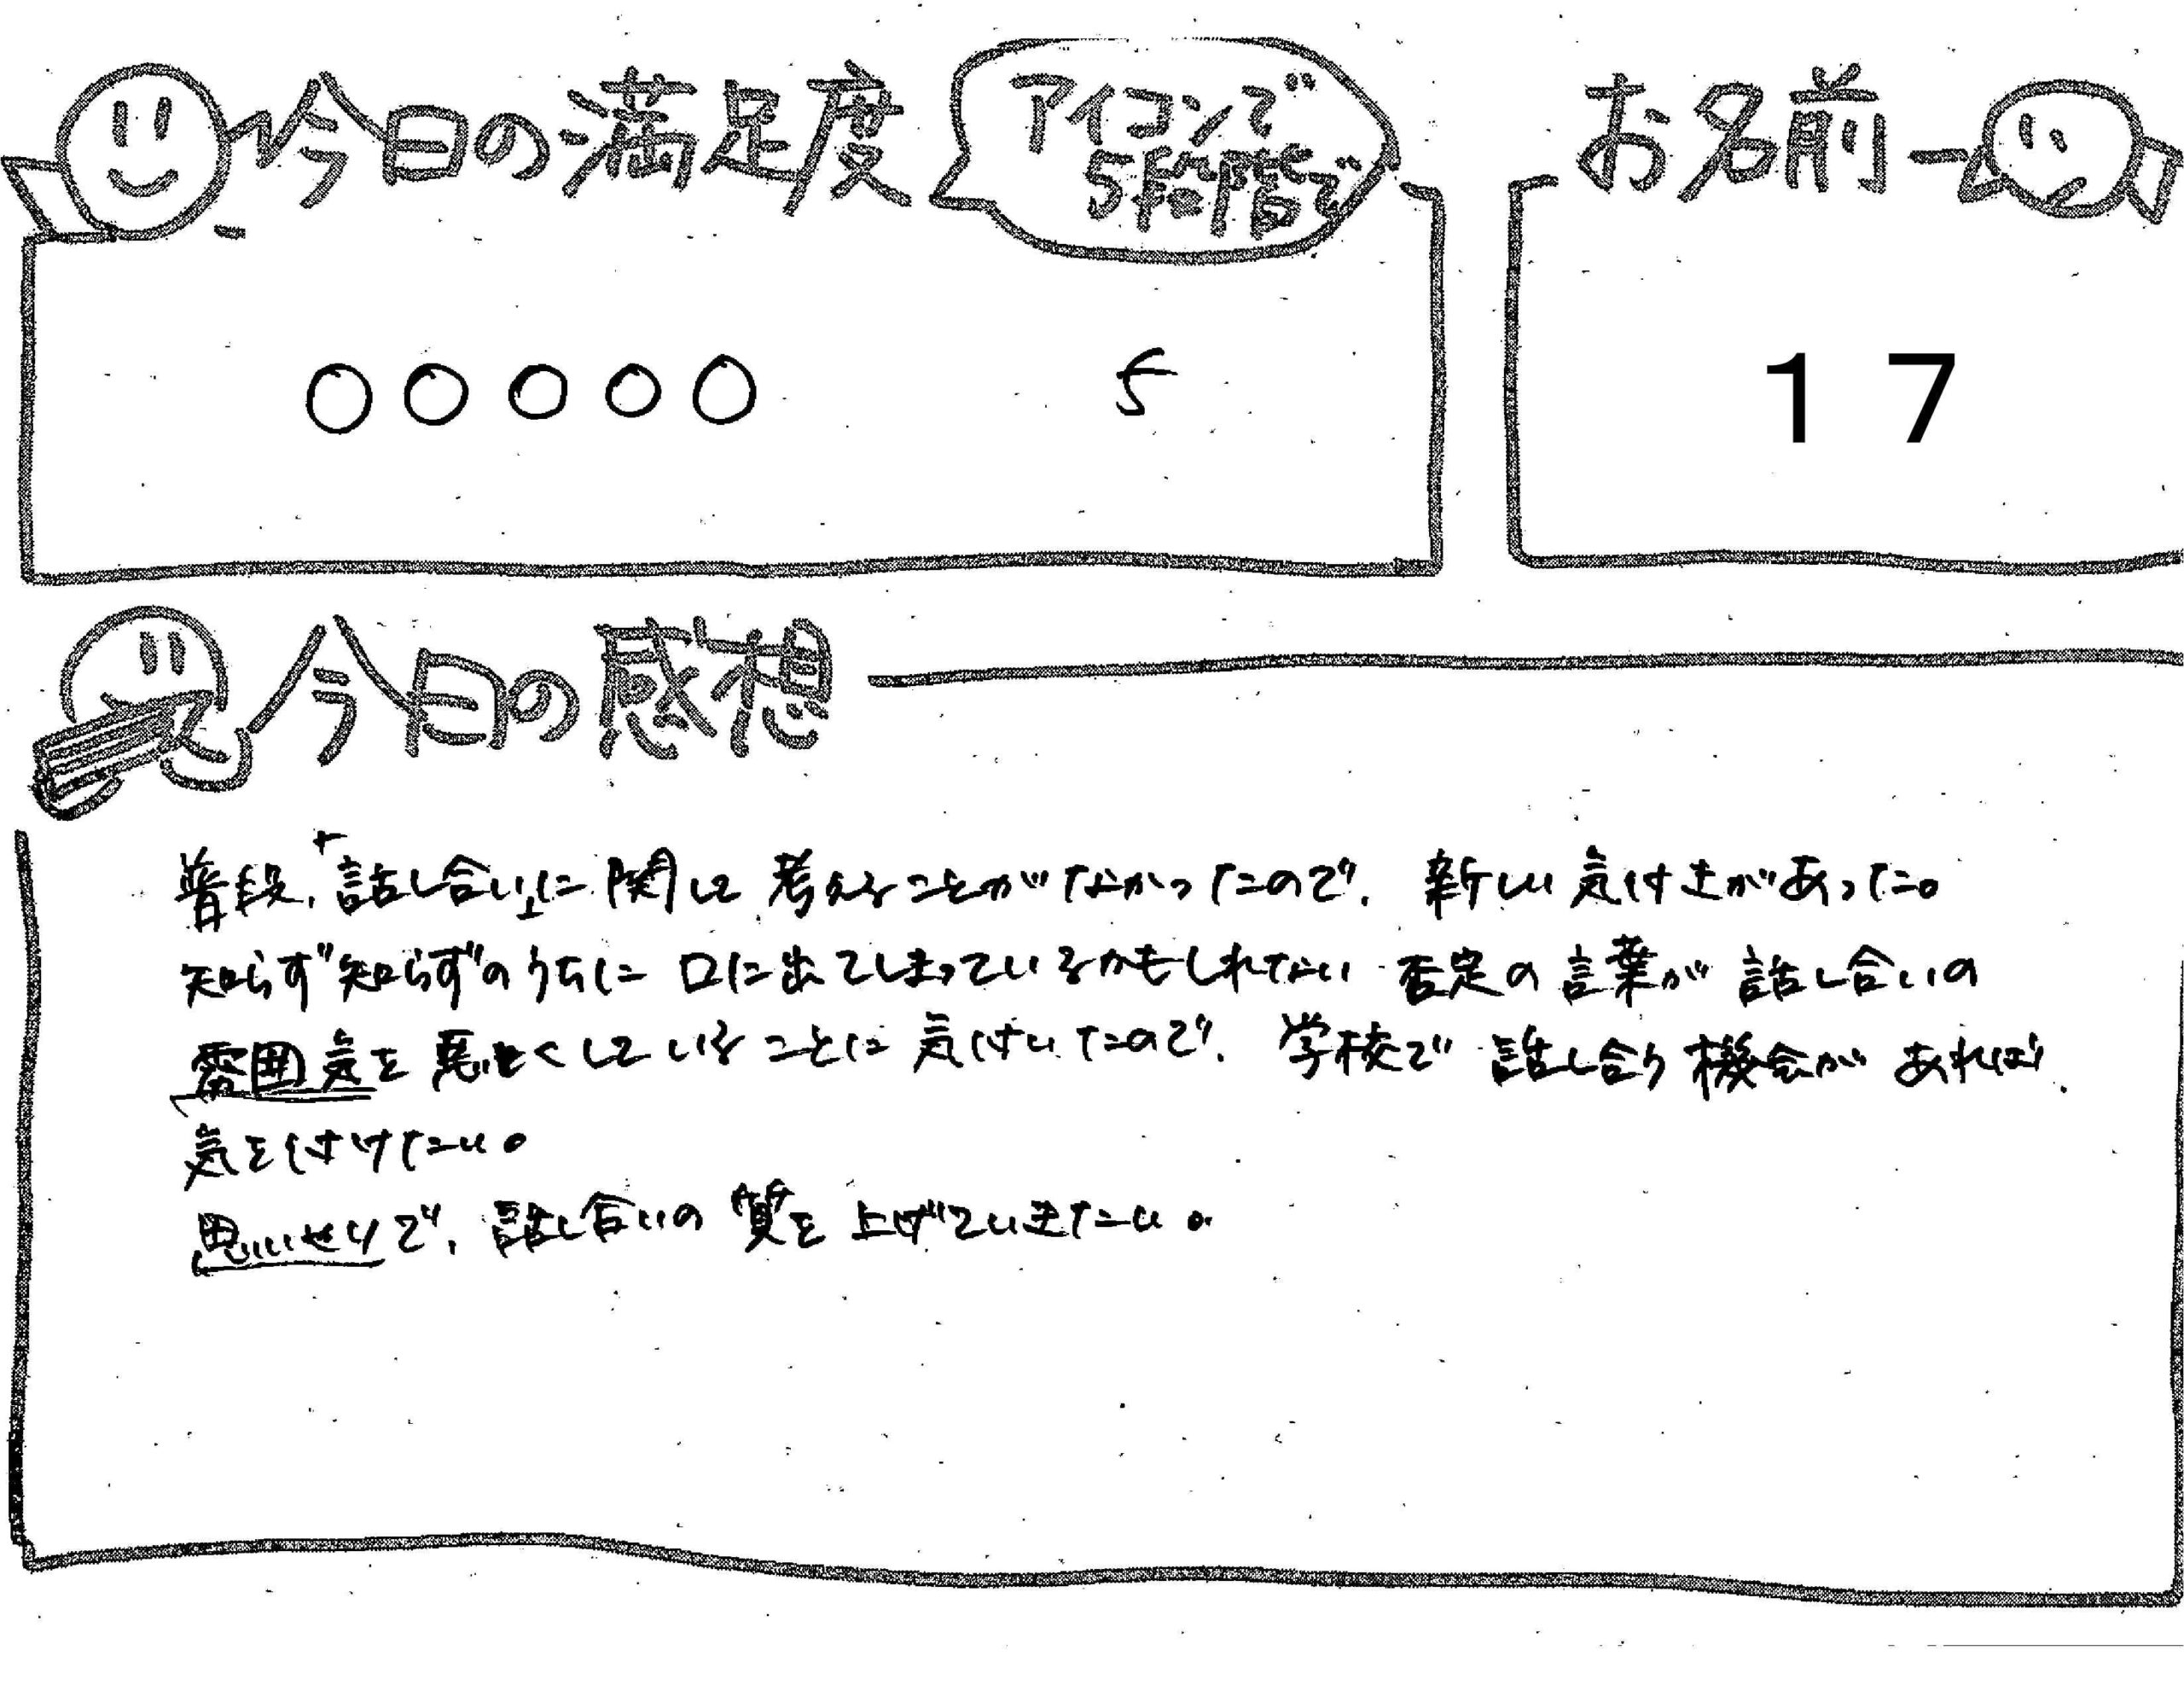 今日の満足度
アイコンで
5段階で
お名前
○○○○○ 5
17
今日の感想
普段,「話し合い」に関して考えることがなかったので,新しい気付きがあった。
知らず知らずのうちに口に出てしまっているかもしれない否定の言葉が話し合いの
雰囲気を悪くしていることに気付いたので,学校で話し合う機会があれば,
気を付けたい。
思いやりで,話し合いの質を上げていきたい。